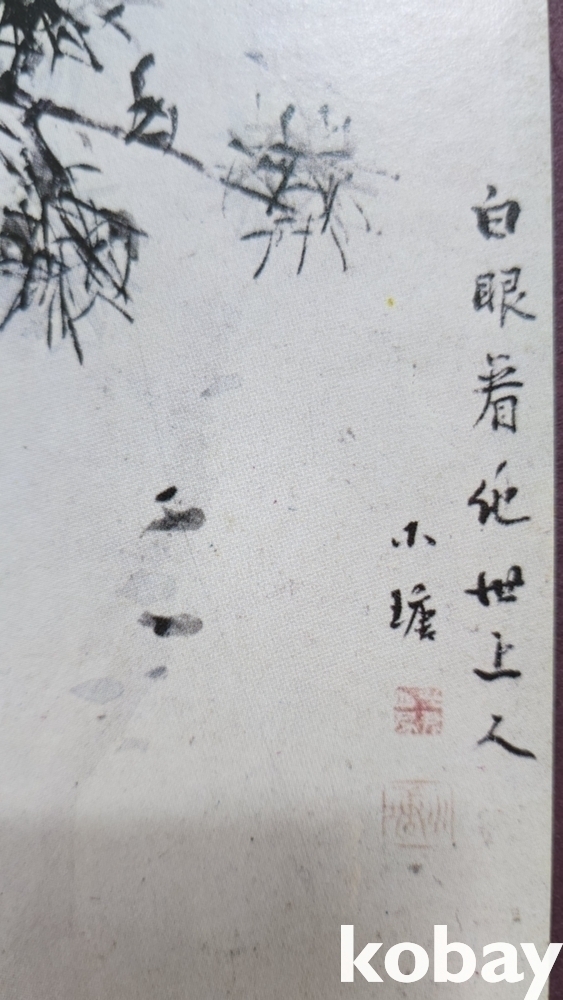 白眼看他世上人
小塘
kobay